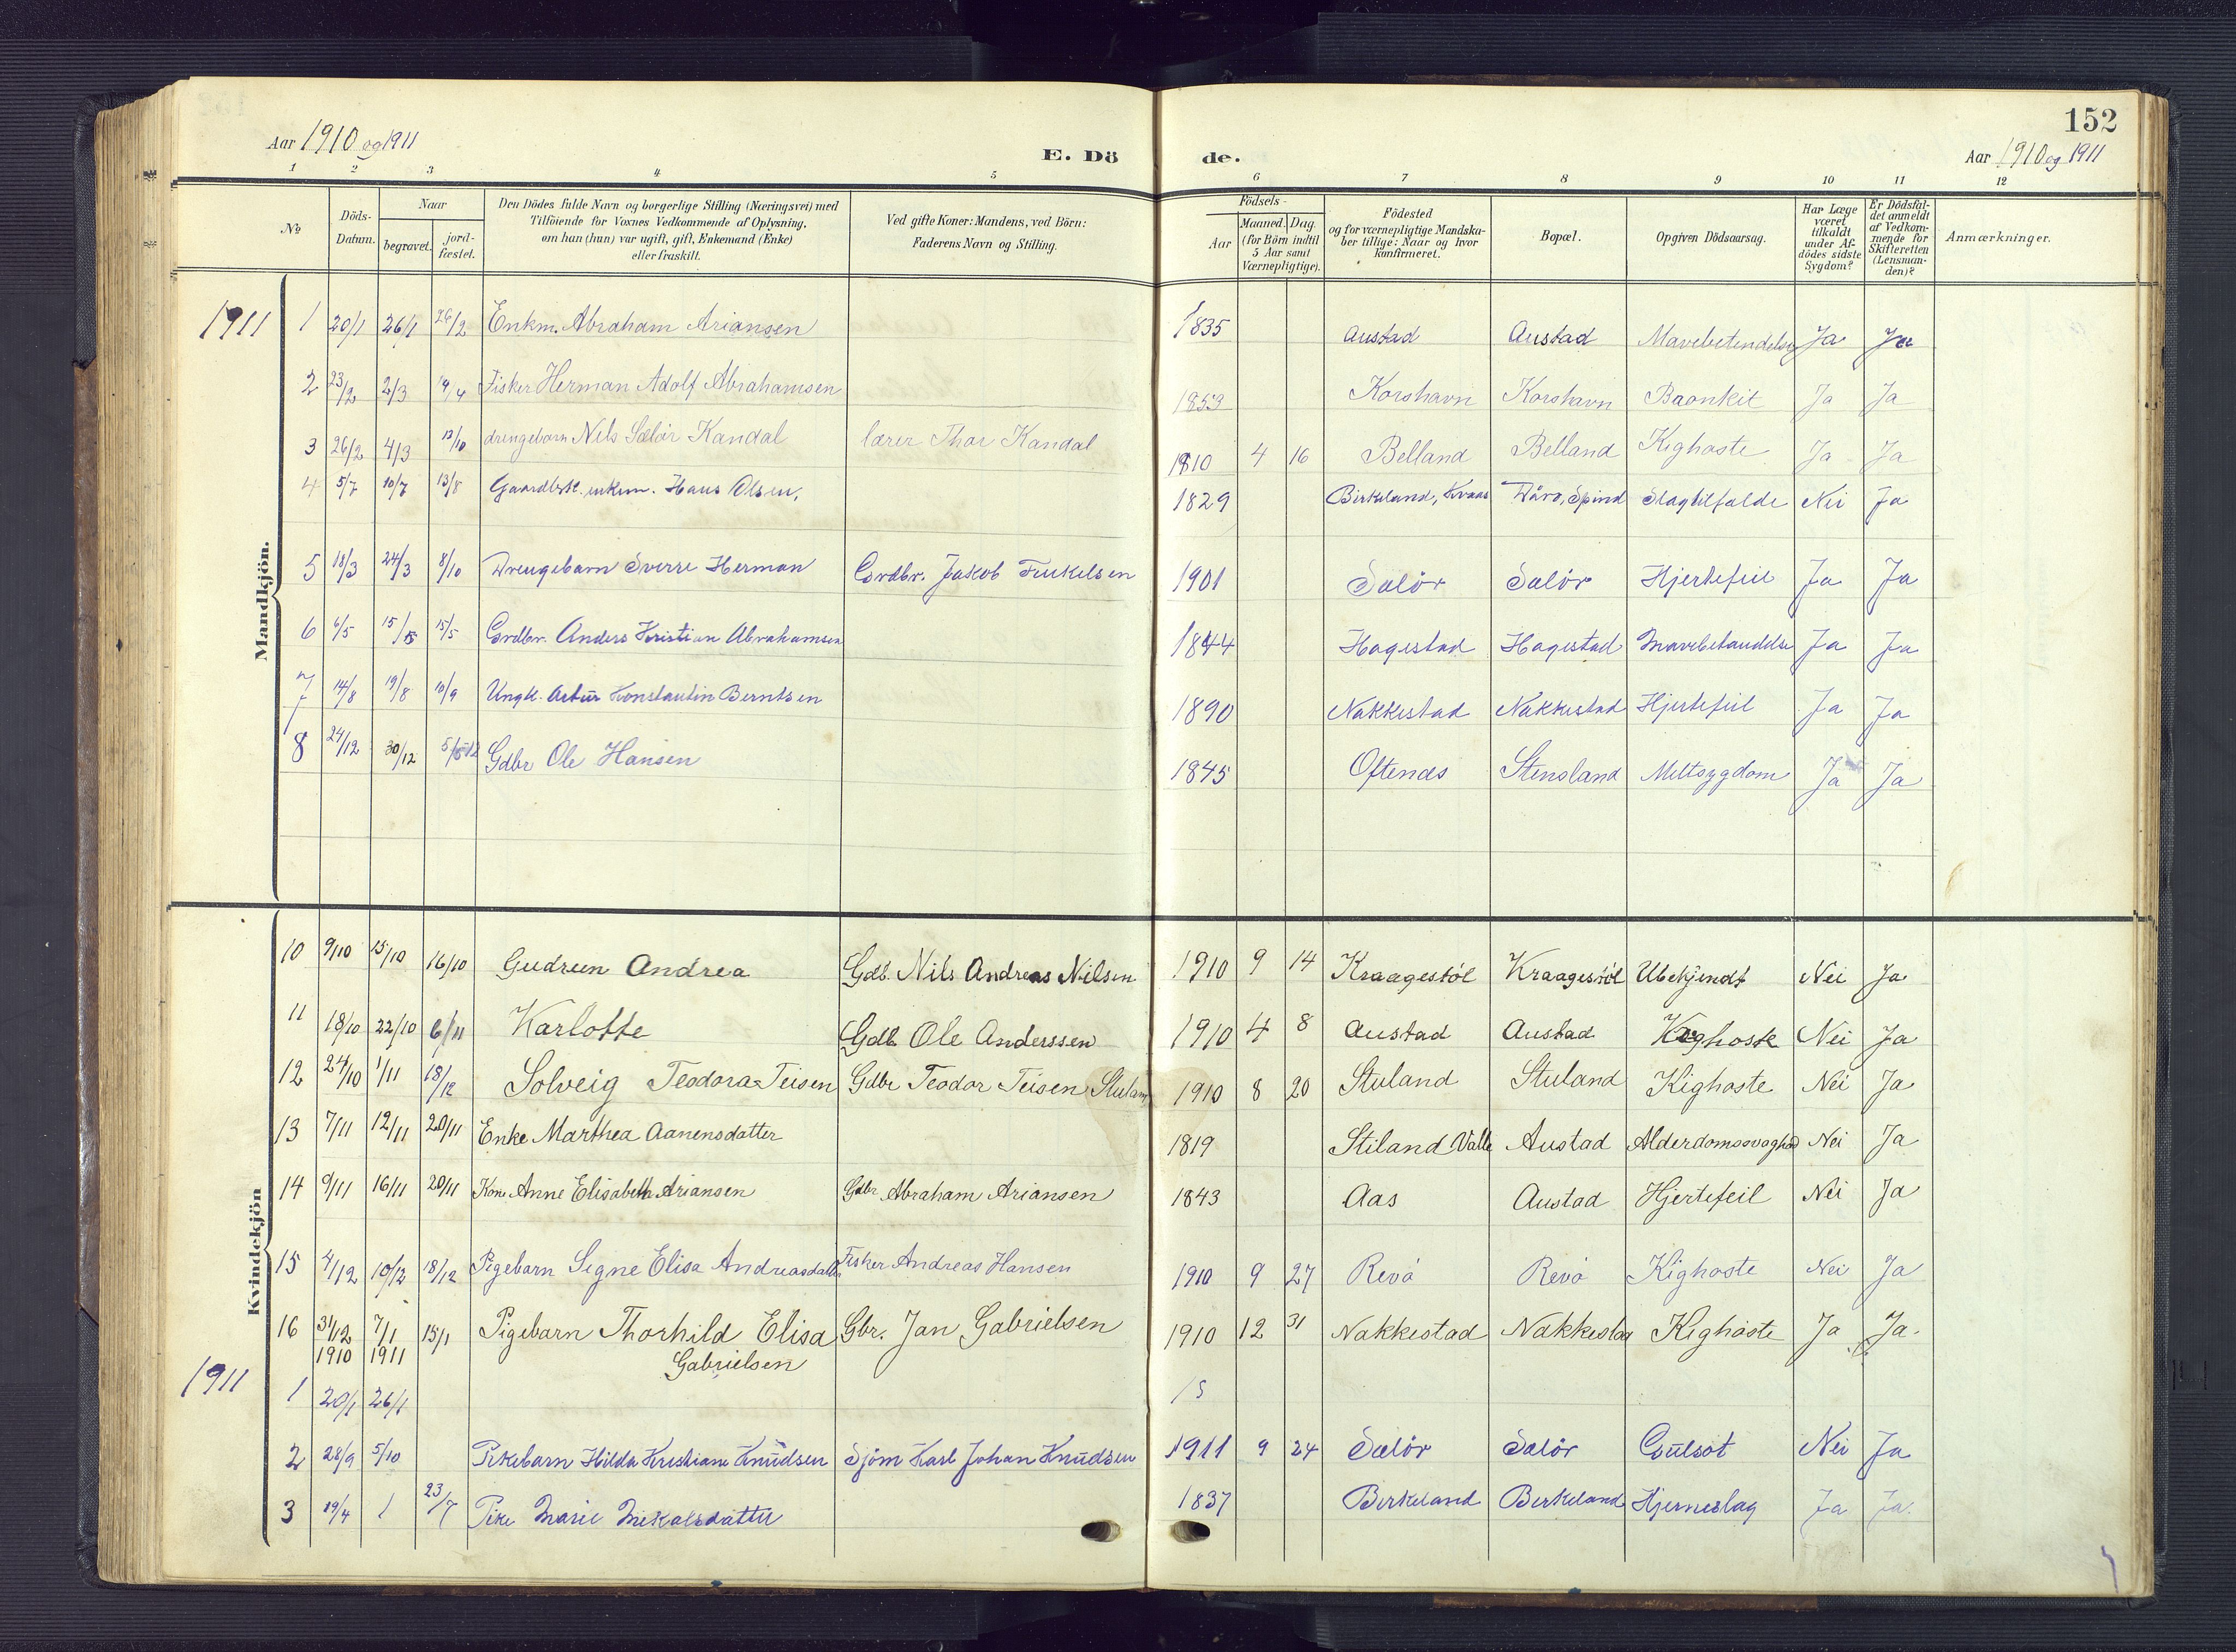 152
Aar 1910 og 1911
E. Dö
de.
Aar 1910 og 1911
1 2 3 4 5 6 7 8 9 10 11 12
№ Döds-Datum. Naar begravet. jord-fæstet. Den Dödes fulde Navn og borgerlige Stilling (Næringsvei) med Tilföiende for Voxnes Vedkommende af Oplysning, om han (hun) var ugift, gift, Enkemand (Enke) eller fraskilt. Ved gifte Koner: Mandens, ved Börn: Faderens Navn og Stilling. Födsels- Aar Maaned. Dag. (for Börn indtil 5 Aar samt Værnepligtige). Födested og for værnepligtige Mandskaber tillige: Naar og hvor konfirmeret. Bopæl. Opgiven Dödsaarsag. Har Læge været tilkaldt under Afdödes sidste Sygdom? Er Dödsfaldet anmeldt af Vedkommende for Skifteretten (Lensmanden)? Anmærkninger.
Mandkjön.
1911 1 20/1 26/1 26/2 Enkm. Abraham Ariansen 1835 Austad Austad Mavebetendelse Ja Ja
2 23/2 2/3 19/4 Fisker Herman Adolf Abrahamsen 1859 Korshavn Korshavn Ja Ja
3 26/2 4/3 12/10 drengebarn Nils Sælör Kandal lærer Thor Kandal 1910 4 16 Belland Belland Kighoste Ja Ja
4 5/7 10/7 13/8 Gaardbrk. enkm. Hans Olsen, 1829 Birkeland, Kvaas Spind Slagtilfælde Nei Ja
5 18/3 24/3 8/10 Drengebarn Sverre Herman Gordbr. Jakob Tenkelsen 1901 Sælör Sælör Hjertefeil Ja Ja
6 6/5 15/5 15/5 Gordbr. Anders Kristian Abrahamsen 1844 Hagestad Hagestad Mavebetændelse Ja Ja
7 14/8 19/8 10/9 Ungk. Artur Konstantin Berntsen 1890 Nakkestad Nakkestad Hjertefeil Ja Ja
8 24/12 30/12 Gdbr Ole Hansen 1845 Oftenes Stensland Miltsygdom Ja Ja
Kvindekjön
10 9/10 15/10 16/10 Gudrun Andrea Gdb. Nils Andreas Nilsen 1910 9 14 Kraagestöl Kraagestöl Ubekjendt Nei Ja
11 18/10 22/10 6/11 Karlotte Gdb. Ole Anderssen 1910 4 8 Austad Austad Kighoste Nei Ja
12 24/10 1/11 18/12 Solveig Teodora Teisen Gdbr Teodor Teisen Stuland 1910 8 20 Stuland Stuland Kighoste Nei Ja
13 7/11 12/11 20/11 Enke Marthea Aanensdatter 1819 Stiland Valle Austad Alderdomssvaghed Nei Ja
14 9/11 16/11 20/11 Kone Anne Elisabeth Ariansen Gdbr Abraham Ariansen 1843 Aas Austad Hjertefeil Nei Ja
15 4/12 10/12 18/12 Pigebarn Signe Elisa Andreasdatter Fisker Andreas Hansen 1910 9 27 Revö Revö Kighoste Nei Ja
16 31/12 1910 7/1 1911 15/1 Pigebarn Thorhild Elisa Gabrielsen Gbr. Jan Gabrielsen 1910 12 31 Nakkestad Nakkestad Kighoste Ja Ja.
1911 1 20/1 26/1
2 28/9 5/10 Pikebarn Hilda Kristiane Knudsen Sjöm Karl Johan Knudsen 1911 9 24 Sælör Sælör Gulsot Nei Ja
3 19/4 23/7 Pike Marie Mikalsdatter 1837 Birkeland Birkeland Hjerneslag Ja Ja.